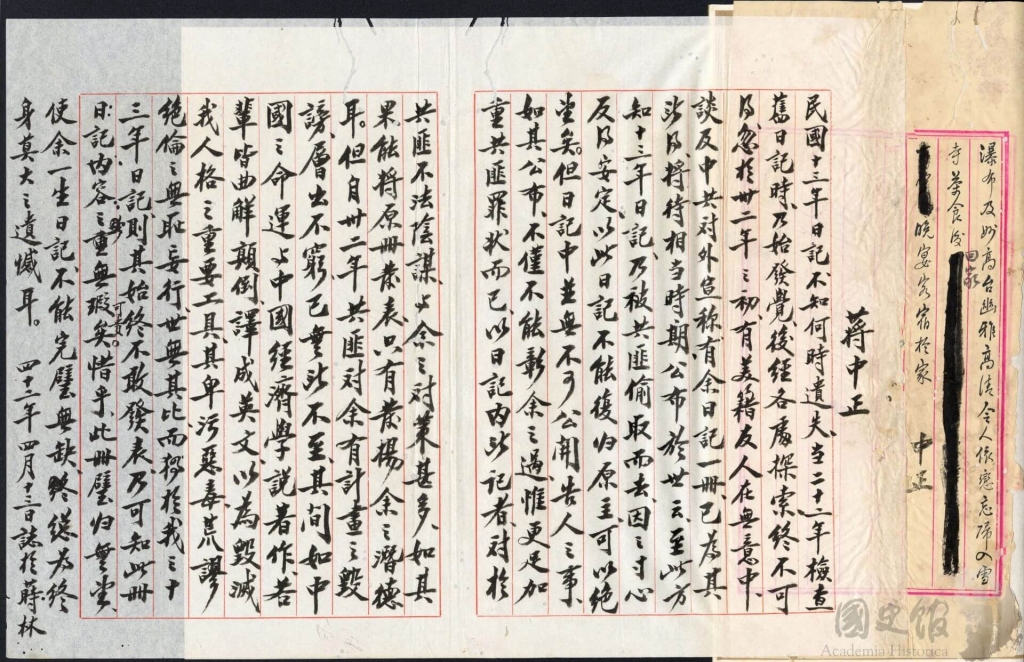 瀑布及妙高台幽雅高清令人依戀忘歸入雪
寺茶食後回家
晚宴客宿於家 中正
蔣中正
民國十三年日記不知何時遺失、當二十二年檢查
舊日記時、乃始發覺後經各處探索終不可
得、忽於卅二年之初、有美籍友人在無意中、
談及中共對外宣稱有余日記一冊、已為其
所得、將待相当時期公布於世云、至此方
知十三年日記乃被共匪偷取而去、因之寸心
反得安定、以此日記不能復归原主、可以绝
望矣。但日記中並無不可公開告人之事、
如其公布、不僅不能彰余之過、惟更足加
重共匪罪狀而已、以日記內所記者、对於
共匪不法陰謀、与余之对策甚多、如其
果能將原冊發表、只有發揚余之潛德
耳。但自卅二年、共匪对余有計畫之毀
謗、層出不窮、已無所不至、其间如中
國之命運与中國经濟學说著作、若
輩皆曲解顛倒、譯成英文、以為毀滅
我人格之重要工具、其卑污惡毒荒謬
绝倫之無耻妄行、世無其比、而獨於我之十
三年日記、則其始终不敢發表、乃可知此冊
日記內容之重要可貴。無瑕矣、惜乎此冊璧归無望、
使余一生日記、不能完璧無缺、終為终
身莫大之遺憾耳。 四十二年四月十三日誌於蒔林
國史館
Academia Historica